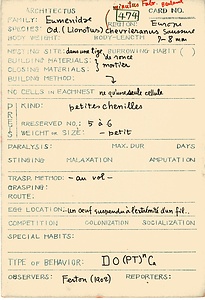 ARCHITECTUS minutus Fabr. CARD NO.
FAMILY: Eumenidae 474 REGION: Europe
SPECIES: Od. (Lionotus) chevrieranus Saussure
BODY WEIGHT: BODY-LENGTH: 7-8 mm
NESTING SITE: dans une tige BURROWING HABIT ( )
BUILDING MATERIALS: de ronce
CLOSING MATERIALS: mortier
BUILDING METHOD:
NO. CELLS IN EACH NEST ne qu'une seule cellule
PREY KIND: petites chenilles
PRESERVED NO.: 5 à 6
WEIGHT OR SIZE: - petit
PARALYSIS: MAX. DUR DAYS
STINGING MALAXATION AMPUTATION
TRANSP. METHOD: - au vol -
GRASPING:
ROUTE:
EGG LOCATION: ... un oeuf suspendu à l'extrémité d'un fil..
COMPETITION: COLONIZATION SOCIALIZATION
SPECIAL HABITS:
TYPE OF BEHAVIOR: DO(PT)ⁿC
OBSERVERS: Ferton (1902) REPORTERS: